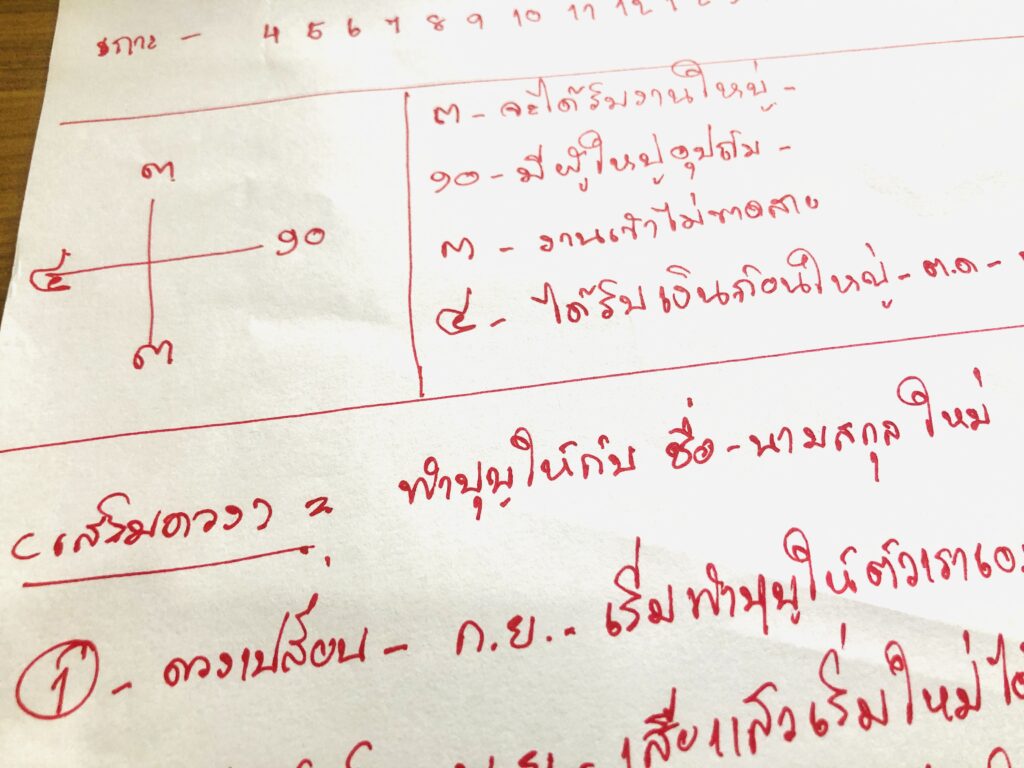 เกาะ - 4 5 6 7 8 9 10 11 12
๓ - จะได้รับงานใหญ่ -
๑๐ - มีผู้ใหญ่อุปถัม -
๓ - งานเข้าไม่ขาดสาย
๔ - ได้รับเงินก้อนใหญ่ - ต.ค -
๓
๑๐
๔
๓
(เสริมดวง) =
ทำบุญให้กับ ชื่อ - นามสกุล ใหม่
① - ดวงเปลี่ยน - ก.ย.. เริ่มทำบุญให้ตัวเรา
เสียแล้วเริ่มใหม่